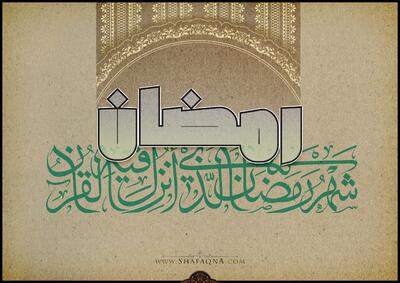 رمضان
شهر رمضان الذي أنزل فيه القرآن
www.ShafaqnA.com